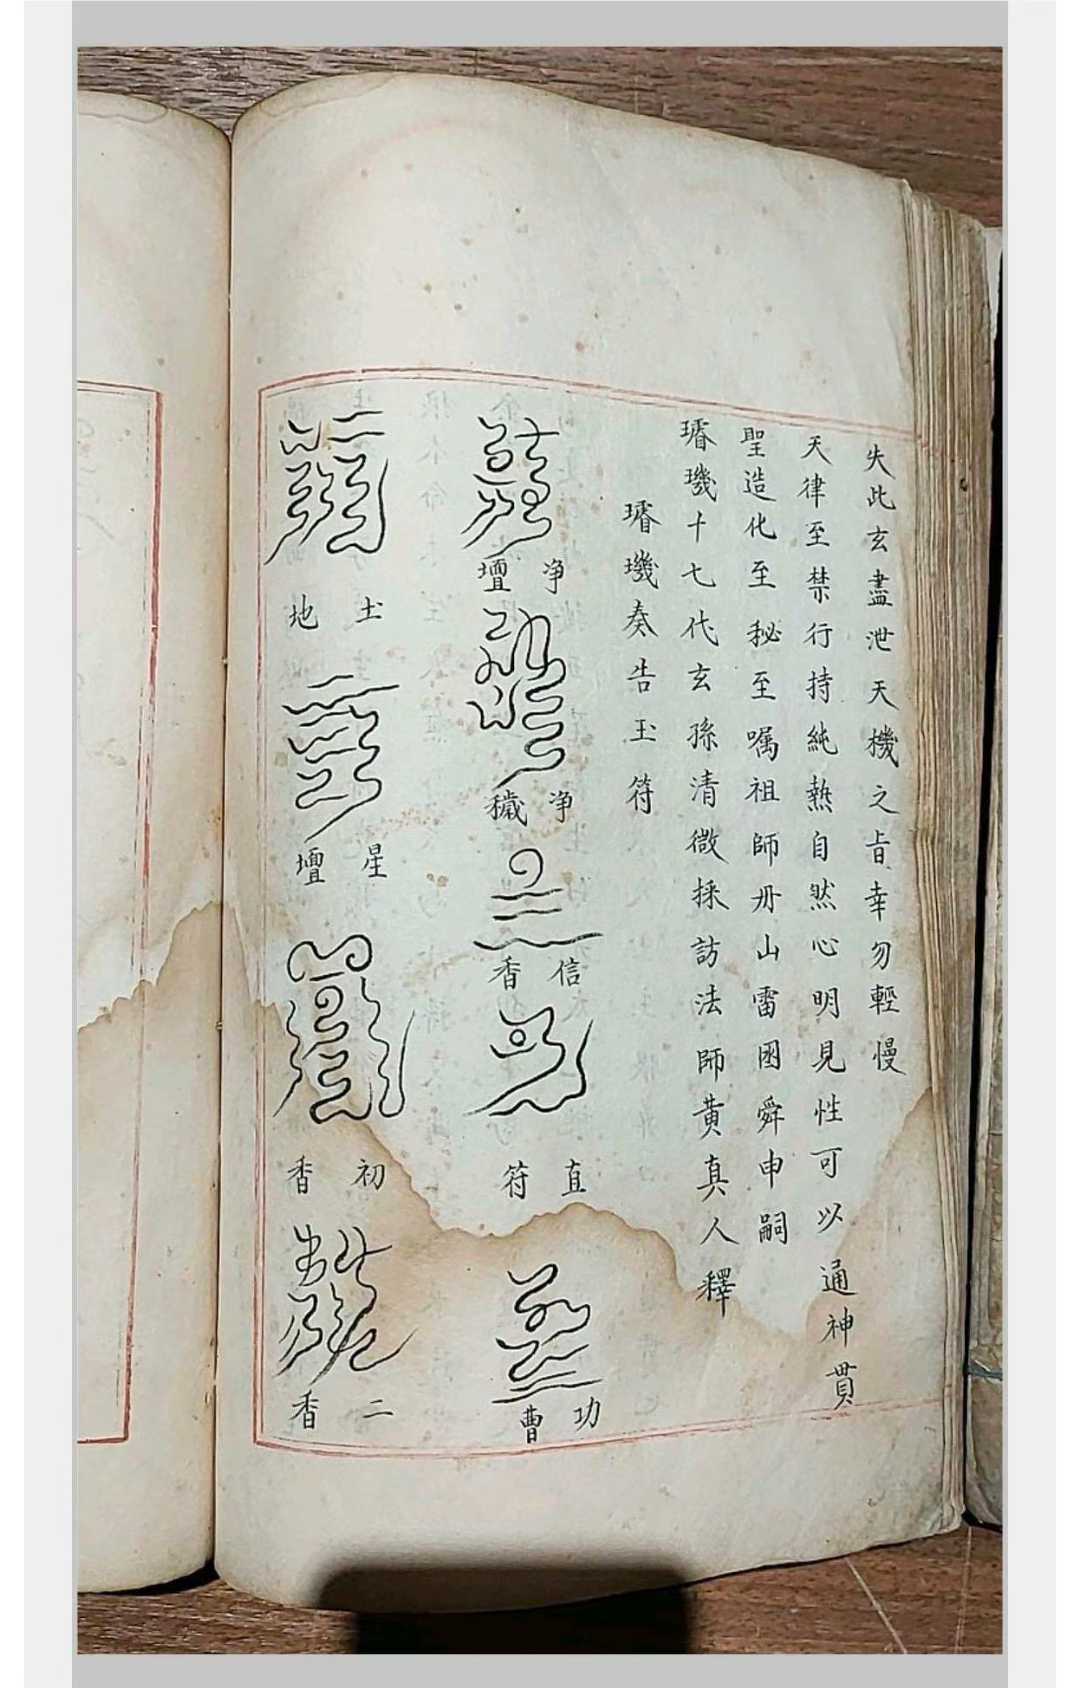 失此玄盡泄天機之旨幸勿輕慢
天律至禁行持純熟自然心明見性可以通神貫
聖造化至秘至嘱祖師丹山雷困舜申嗣
璿璣十七代玄孫清微採訪法師黄真人釋
璿璣奏告玉符
净壇
净穢
信香
直符
功曹
土地
星壇
初香
二香